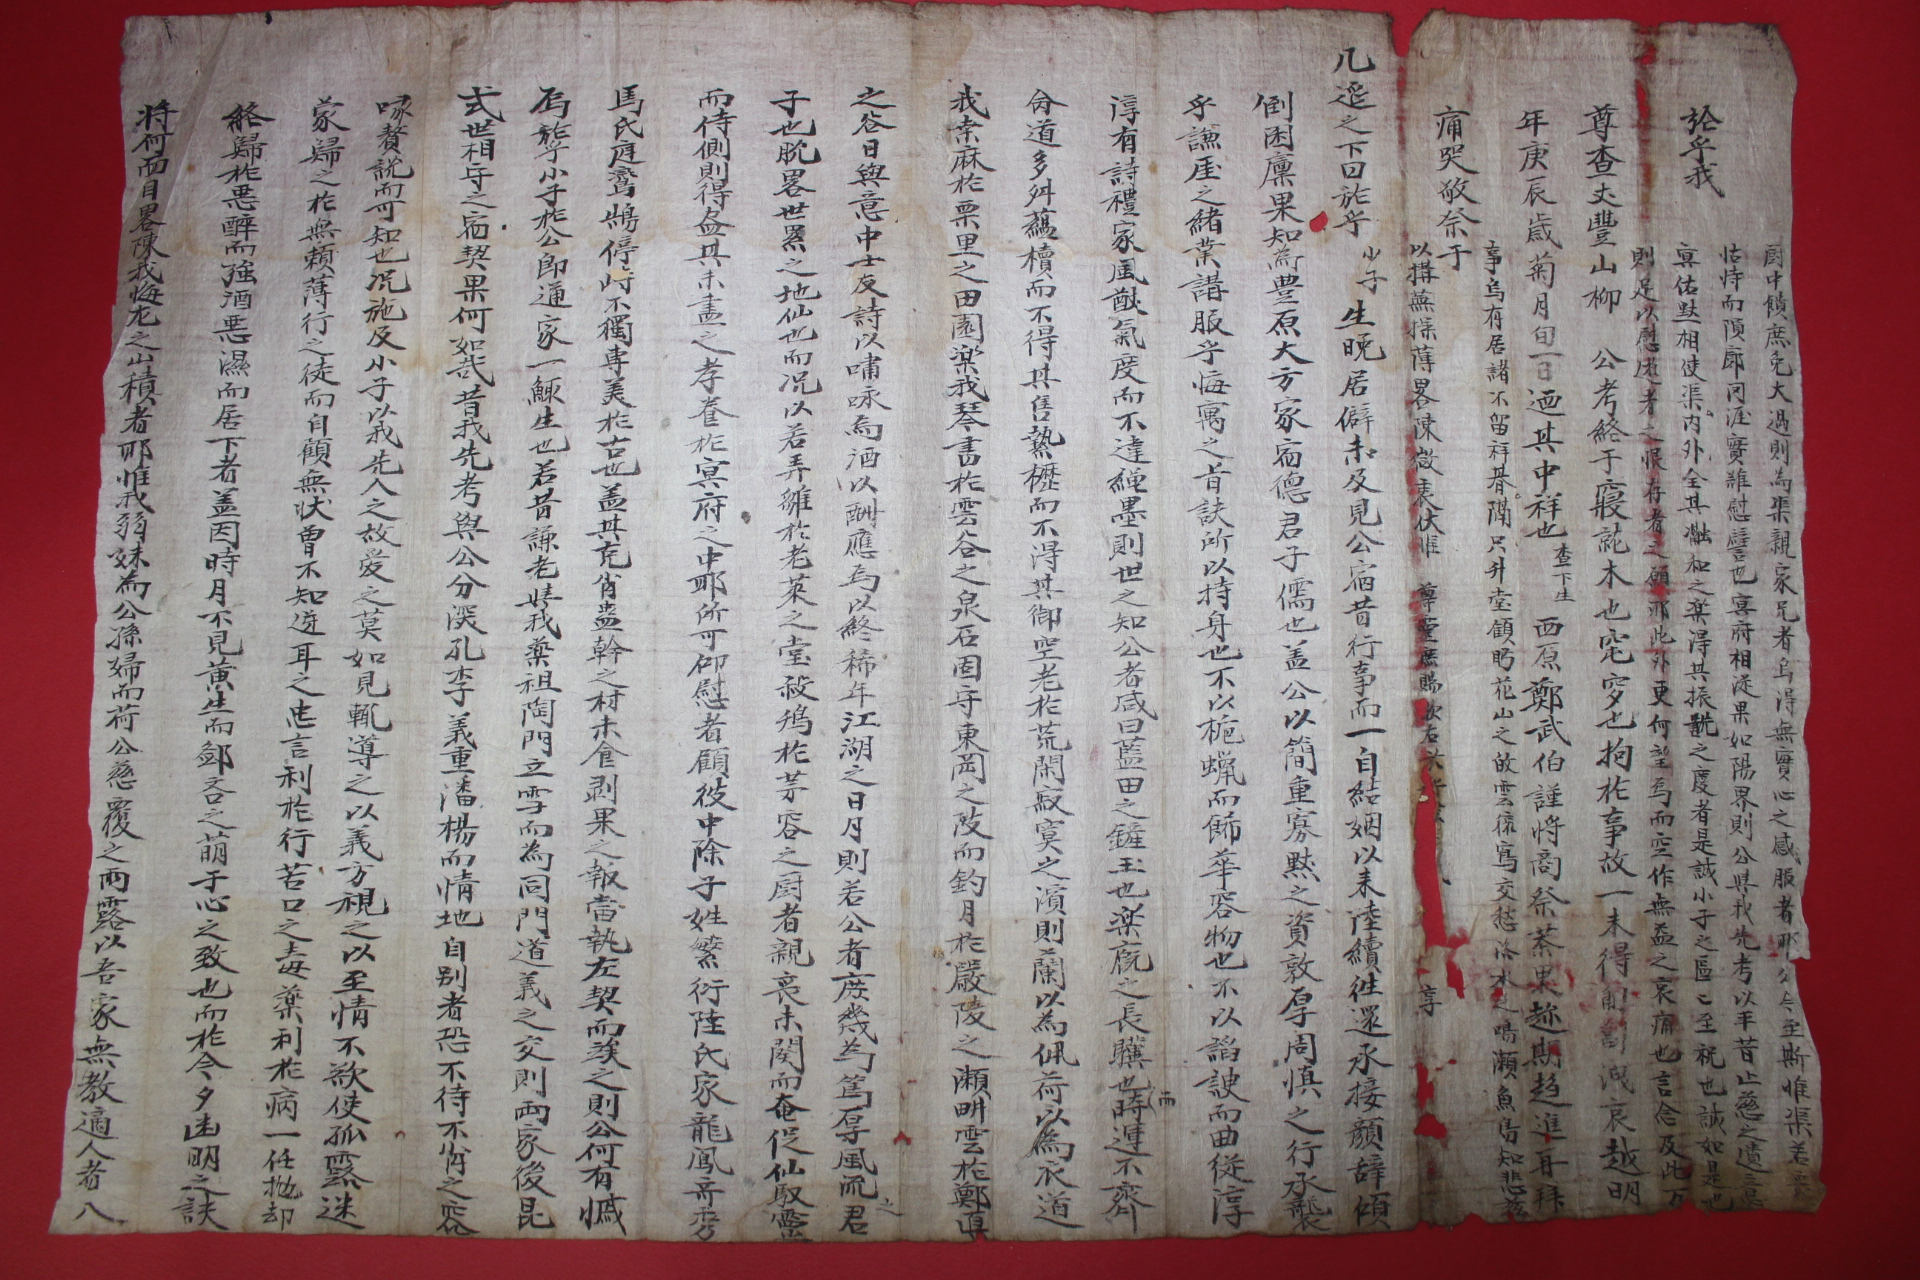 厨中饋庶免大過則為渠親家兄者烏得無實心之感服者耶公今至斯惟渠若喪
怙恃而隕廓同涯實難慰譬也㝠府相從果如陽界則公與我先考以平昔止慈之遺意
㝠佑默相使渠内外全其瀜和之楽得其振之慶者是誠小子之區〻至祝也誠如是也
則足以慰逝者之恨存者之願耶此外更何望焉而空作無益之哀痛也言念及此万
事烏有居諸不留祥朞隔只升堂顧眄花山之故雲徘寫交愁洛水之鳴瀬魚鳥知悲茲
以搆蕪採薄畧陳微衷伏惟 尊靈庶賜歆右 享
於乎我
尊査丈豐山柳 公考終于寢就木也窀穸也拘於事故一未得 洩哀越明
年庚辰歲菊月旬一日迺其中祥也査下生西原鄭武伯謹將商祭茶果趂期趍進再拜
痛哭敬奈于
几筵之下曰於乎小子生晚居僻未及見公宿昔行事而一自結姻以来陸續徃還承接顔辭傾
倒囷廩果知為豊原大方家宿德君子儒也盖公以簡重寡默之資敦厚周慎之行承襲
乎謙庵之緒業講服乎悔窩之旨訣所以持身也不以梔蝋而餙華容物也不以謟諛而曲從淳
淳有詩禮家風猷氣度而不違繩墨則世之知公者咸曰藍田之鏟玉也楽廐之長驥也而時運不齊
命道多舛蘊櫝而不得其售爇櫪而不得其御空老於荒閑寂寞之濱則蘭以為佩荷以為衣道
我桒麻於栗里之田園楽我琴書於雲谷之泉石固守東岡之陂而釣月於嚴陵之瀬畊雲於鄭眞
之谷日與意中士友詩以嘯咏焉酒以酬應焉以終稀年江湖之日月則若公者庶幾為篤厚風流之君
子也脫畧世累之地仙也而况以若弄雛於老萊之堂殺鷄於茅容之厨者親喪未闋而奄促仙馭靈
而侍側則得盡其未盡之孝養於㝠府之中耶所可仰慰者顧彼中除子姓繁衍陸氏家龍鳳齊秀
馬氏庭鸞鵠停峙不獨専美於古也盖其克肖盡幹之材未食剥果之報當執左契而竢之則公何有慽
焉於乎小子於公即通家一鯫生也若昔謙老娚我藥祖陶門立雪而為同門道義之交則兩家後昆
式世相守之宿契果何如哉昔我先考與公分深孔李義重潘楊而情地自别者恐不待不肖之容
喙贅說而可知也况施及小子以我先人之故愛之莫如見輒導之以義方視之以至情不欲使孤露迷
蒙歸之於無頼薄行之徒而自顧無状曾不知逆耳之忠言利於行苦口之毒藥利於病一任抛却
終歸於悪醉而強酒悪濕而居下者盖因時月不見黄生而鄙吝之萌于心之致也而於今夕凼明之訣
將何面目畧陳我悔尤之山積者耶惟我弱妹為公孫婦而荷公慈覆之兩露以吾家無教適人者八